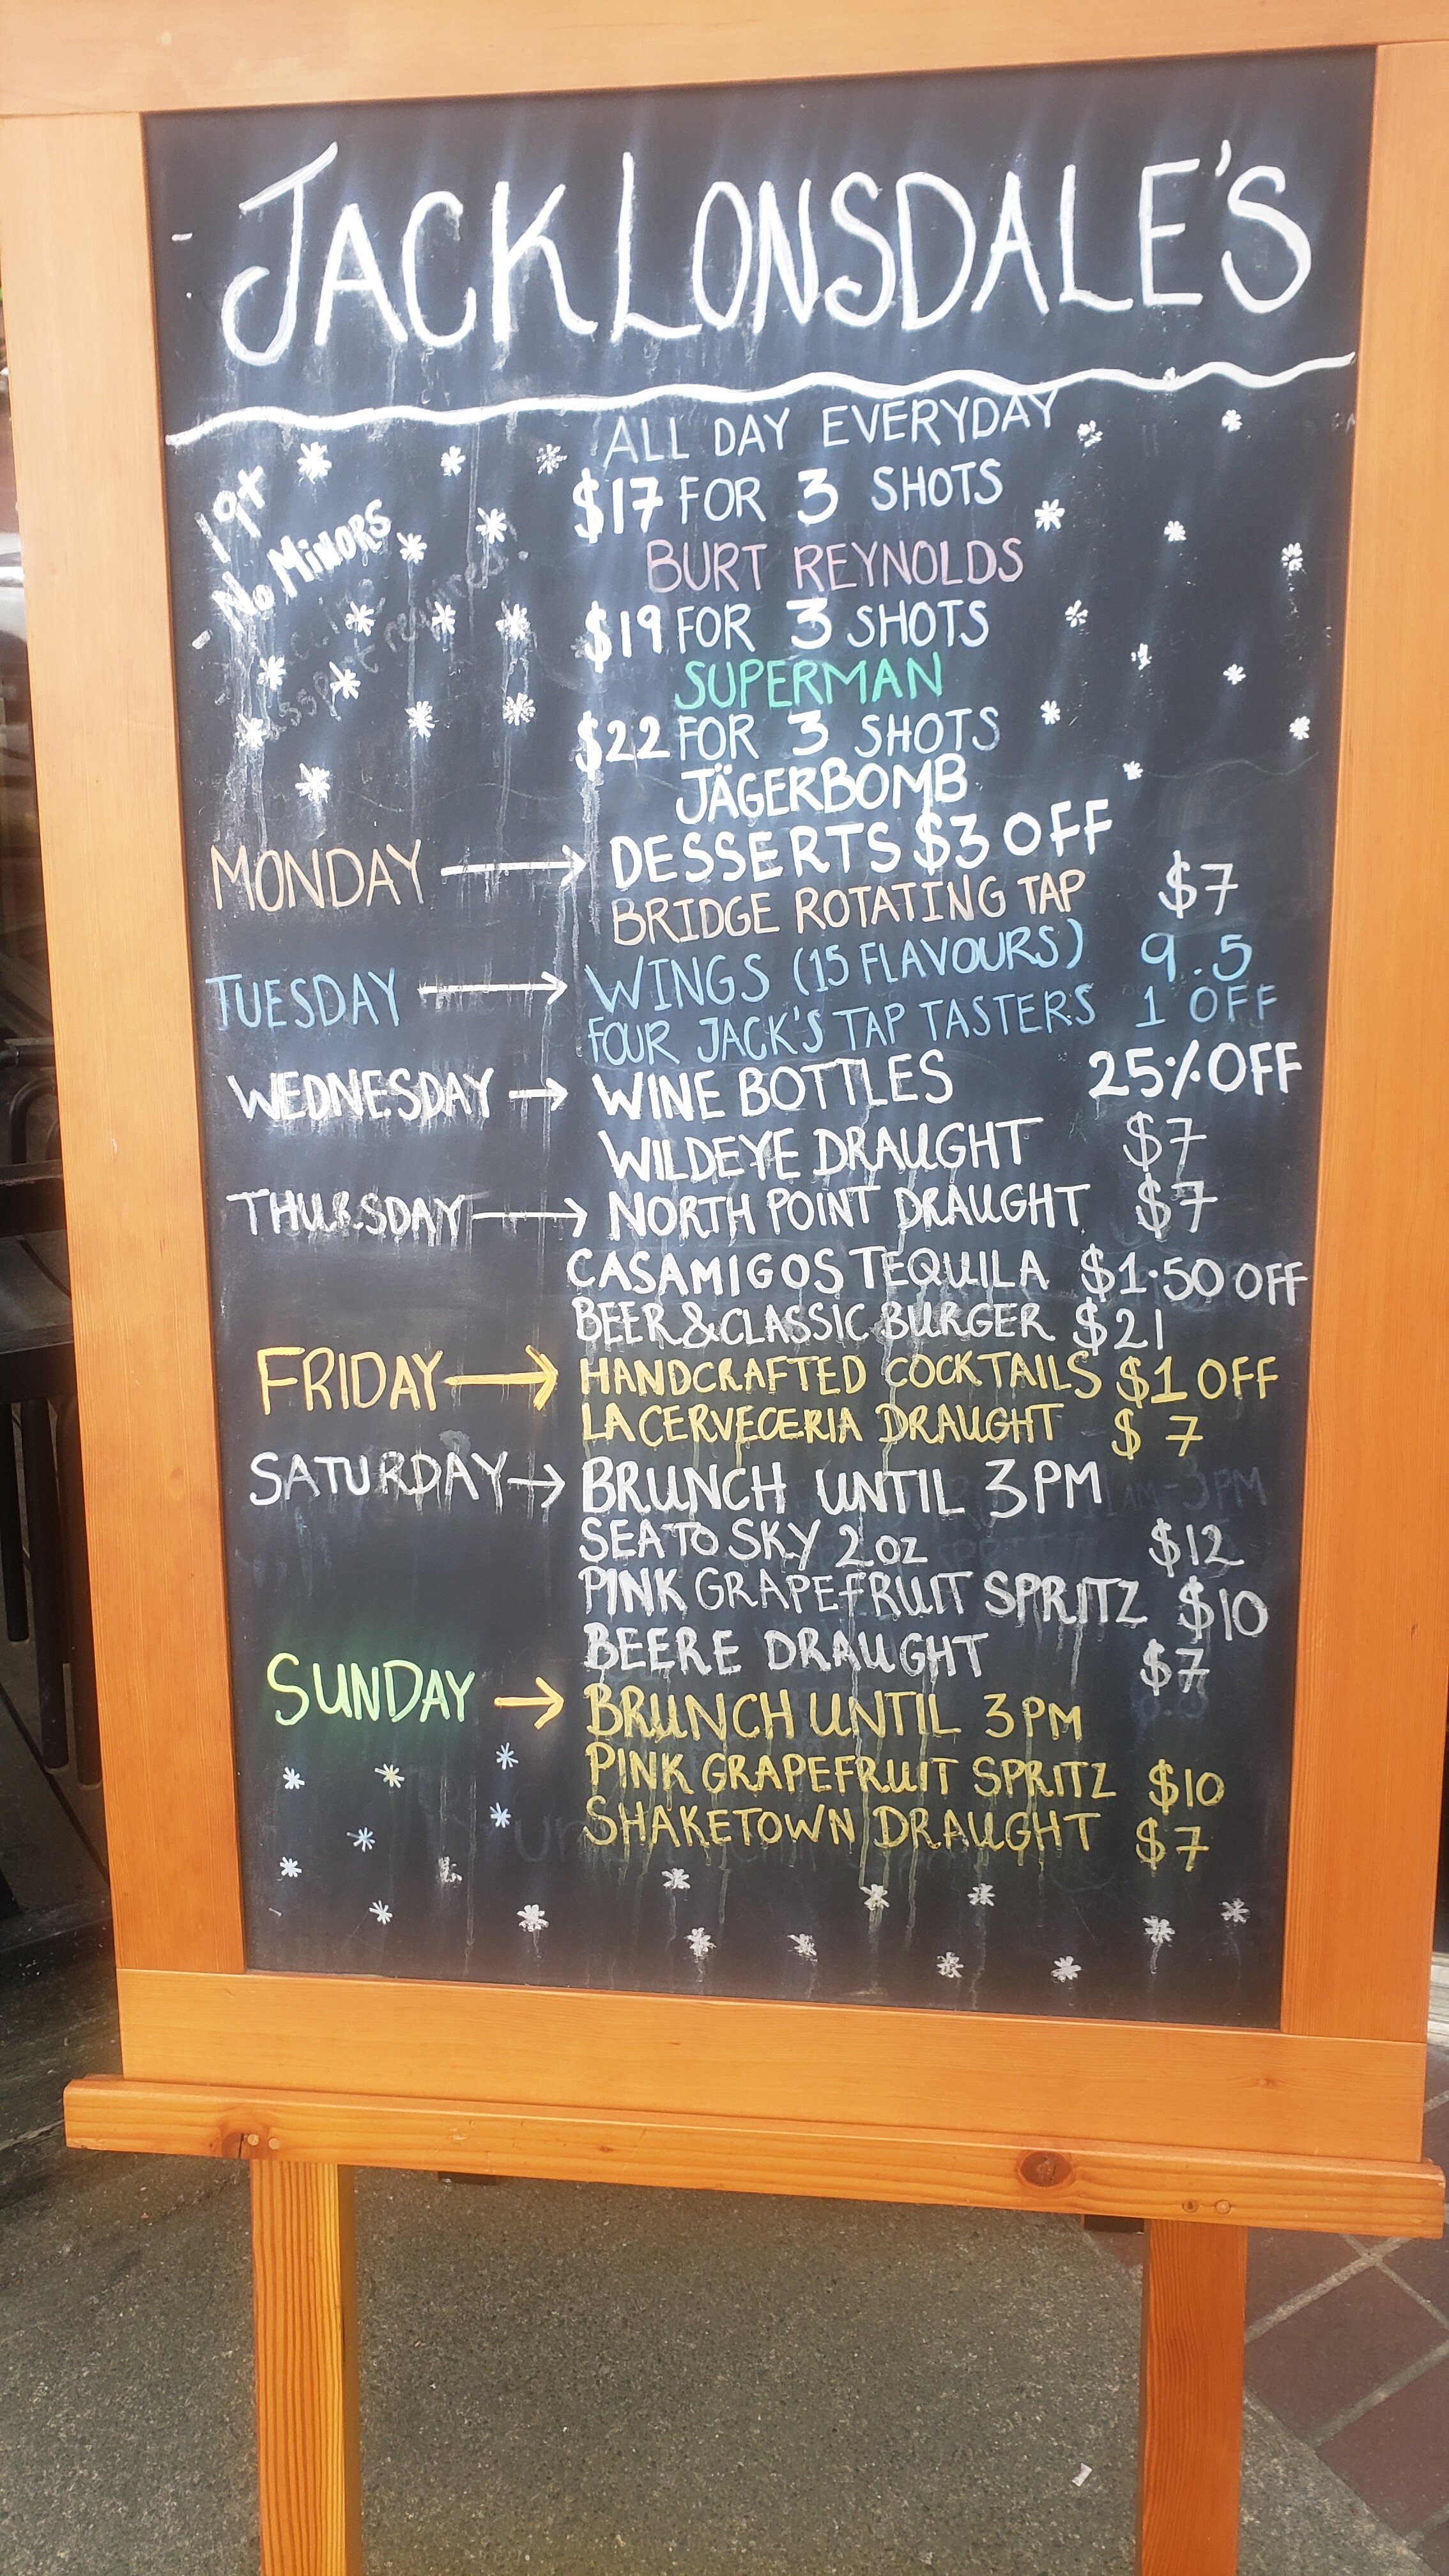 JACK LONSDALE'S
19+
No MiNORS
ALL DAY EVERYDAY
$17 FOR 3 SHOTS
BURT REYNOLDS
$19 FOR 3 SHOTS
SUPERMAN
$22 FOR 3 SHOTS
JÄGERBOMB
MONDAY → DESSERTS $3 OFF
BRIDGE ROTATING TAP $7
TUESDAY → WINGS (15 FLAVOURS) 9.5
FOUR JACK'S TAP TASTERS 1 OFF
WEDNESDAY → WINE BOTTLES 25% OFF
WILDEYE DRAUGHT $7
THURSDAY → NORTH POINT DRAUGHT $7
CASAMIGOS TEQUILA $1.50 OFF
BEER & CLASSIC BURGER $21
FRIDAY → HANDCRAFTED COCKTAILS $1 OFF
LA CERVECERIA DRAUGHT $7
SATURDAY → BRUNCH UNTIL 3PM
SEA TO SKY 2 oz $12
PINK GRAPEFRUIT SPRITZ $10
BEERE DRAUGHT $7
SUNDAY → BRUNCH UNTIL 3PM
PINK GRAPEFRUIT SPRITZ $10
SHAKETOWN DRAUGHT $7